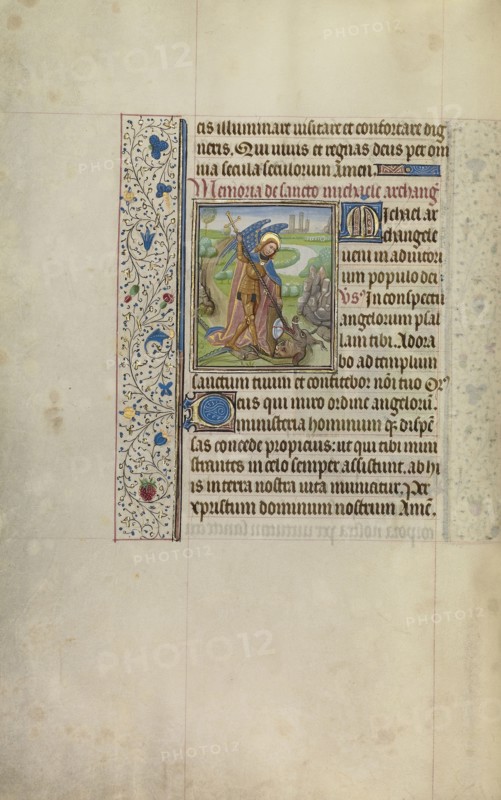 cis illuminare visitare et confortare dig
neris. Qui vivis et regnas deus per om
nia secula seculorum Amen.
Memoria de sancto michaele archang
Michael ar
changele
veni in adiutori
um populo dei
Vs Inconspectu
angelorum psal
lam tibi. Adora
bo ad templum
sanctum tuum et confitebor nōi tuo Or
Deus qui miro ordine angelorū.
ministeria hominum qȝ dispē
sas concede propicius: ut qui tibi mini
strantes in celo semper assistunt. ab hi
is in terra nostra vita muniatur. Per
xpristum dominum nostrum Amē.
PHOTO12
PHOTO12
PHOTO12
PHOTO12
PHOTO12
PHOTO12